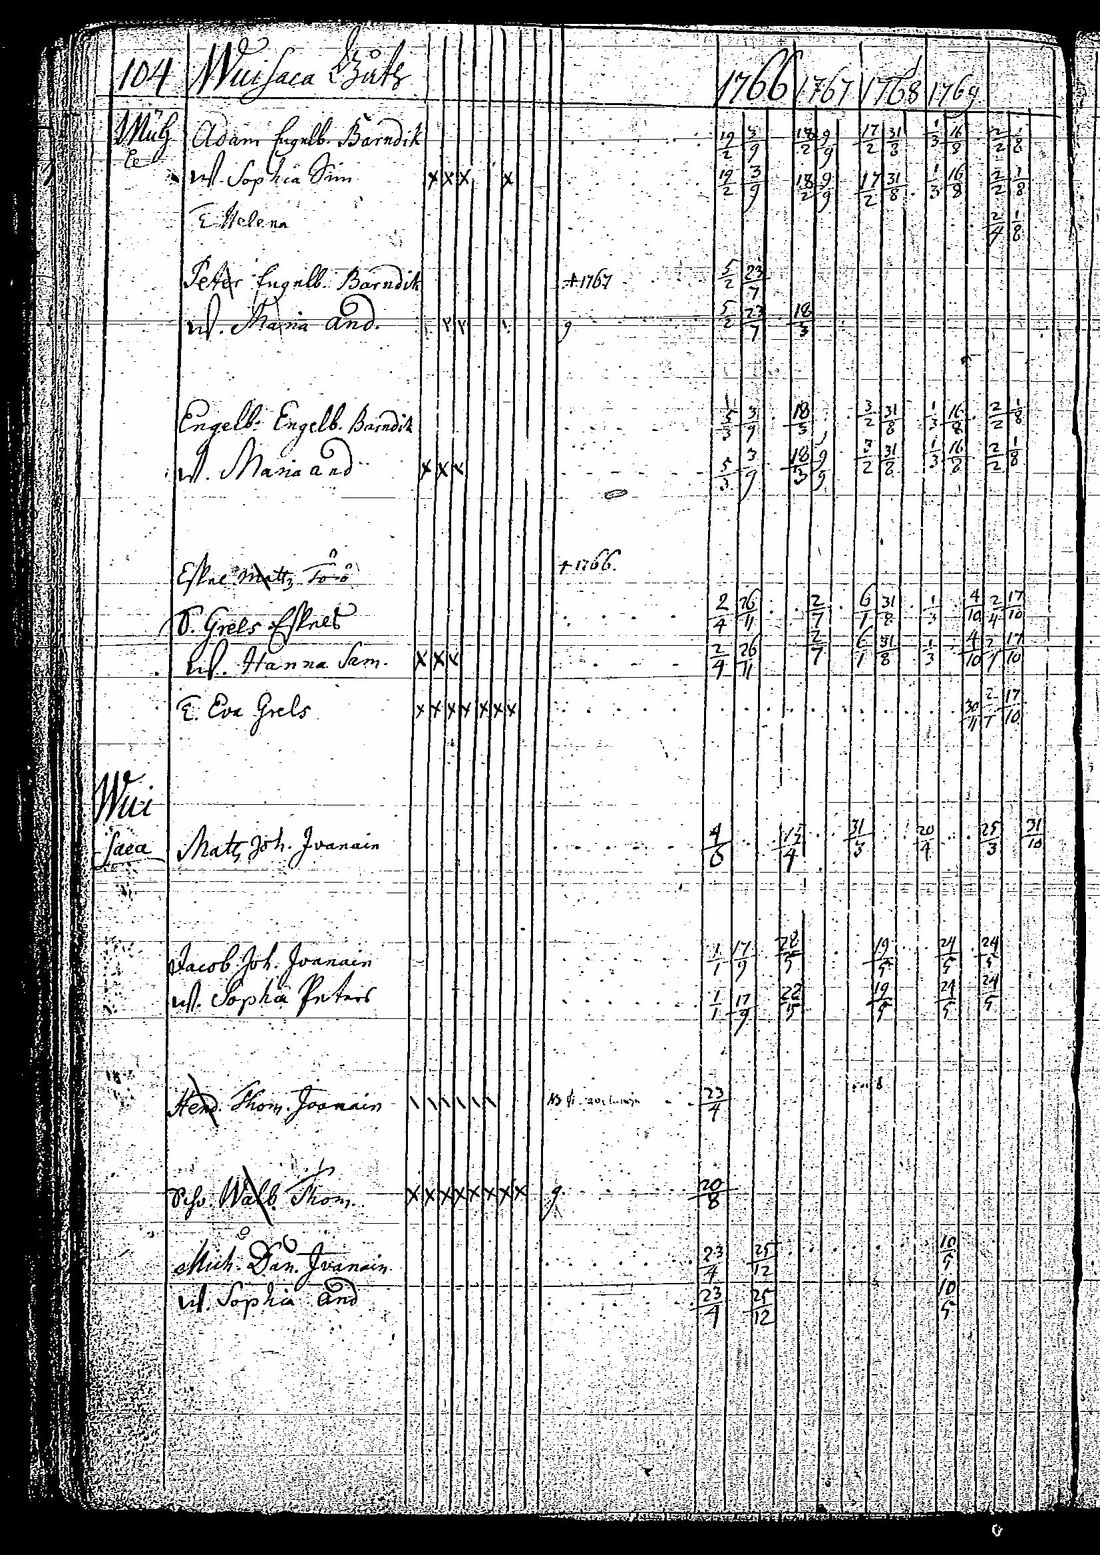 104 Wuisaca Gårds 1766 1767 1768 1769
Mülz Adam Engelb. Barndik 19/2 3/9 18/2 9/9 17/2 31/8 1/3 16/8 2/2 1/8
W. Sophia Sim x x x x 19/2 3/9 18/2 9/9 17/2 31/8 1/3 16/8 2/2 1/8
E Helena 2/4 1/8
Peter Engelb. Barndik +1767 5/2 23/7
W. Maria And. g 5/2 23/7 18/3
Engelb: Engelb. Barndik 5/3 3/9 18/3 3/2 31/8 1/3 16/8 2/2 1/8
W. Maria And x x x 5/3 3/9 18/3 9/9 3/2 31/8 1/3 16/8 2/2 1/8
Eskel Matts +1766.
Grels Eskels 2/4 26/11 2/7 6/1 31/8 1/3 4/10 2/4 17/10
W. Hanna Sam. x x x 2/4 26/11 2/7 6/1 31/8 1/3 4/10 17/10
E. Eva Grels x x x x x x x 30/11 17/10
Wui
saca Matts Joh. Ivanain 4/6 15/4 31/3 20/4 25/3 31/10
Jacob Joh. Ivanain 1/1 17/9 28/5 19/5 24/5 24/5
W. Sophia Peters 1/1 17/9 22/5 19/5 24/5 24/5
Hend. Thom. Ivanain 23/4
Walb. Thom. x x x x x x x x g 20/8
Mich. Dan. Ivanain 23/4 25/12 10/5
W. Sophia And 23/4 25/12 10/5